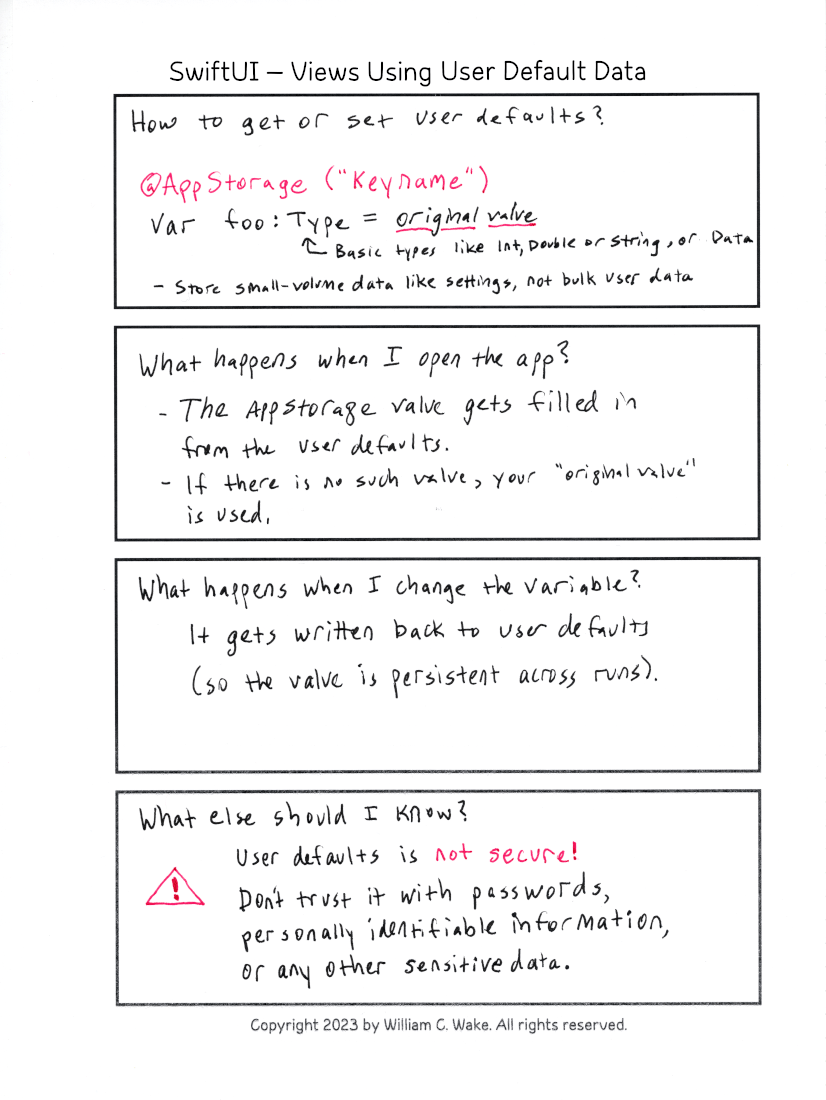 SwiftUI – Views Using User Default Data
How to get or set user defaults?
@AppStorage ("Keyname")
Var foo: Type = original value
Basic types like Int, Double or String, or Data
- Store small-volume data like settings, not bulk user data
What happens when I open the app?
- The AppStorage value gets filled in
from the user defaults.
- If there is no such value, your "original value"
is used.
What happens when I change the variable?
It gets written back to user defaults
(so the value is persistent across runs).
What else should I know?
User defaults is not secure!
!
Don't trust it with passwords,
personally identifiable information,
or any other sensitive data.
Copyright 2023 by William C. Wake. All rights reserved.